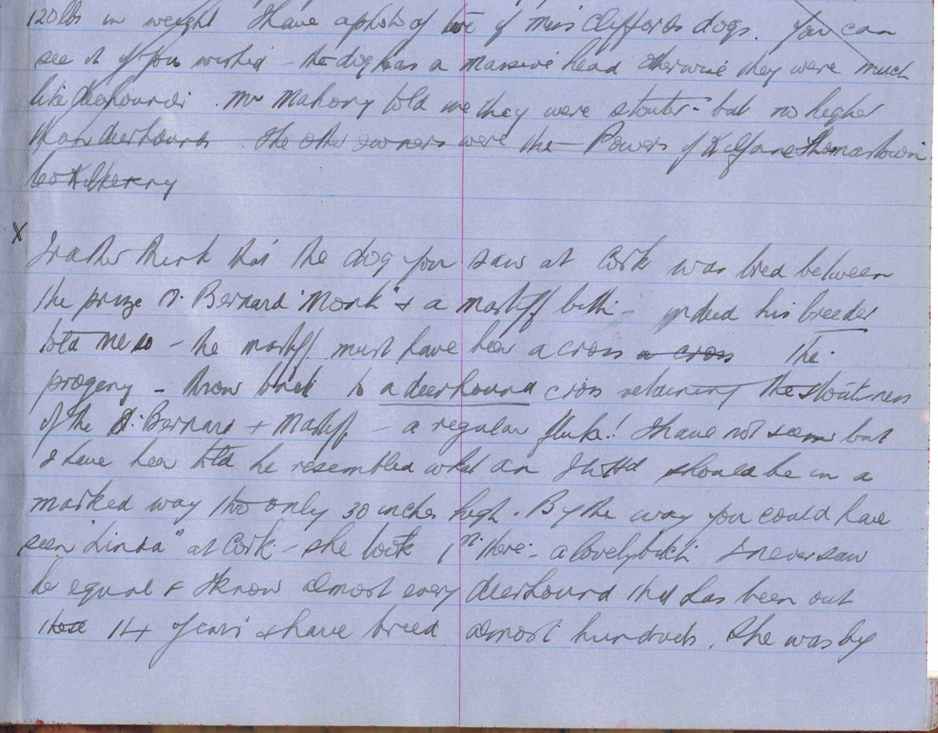 120 lbs in weight I have a photo of two of Miss Cliffords dogs. You can
see it if you wished - the dog has a massive head otherwise they were much
like deerhounds. Mr Mahony told me they were stouter - but no higher
than deerhounds. The other owners were the Powers of Kilfane Thomastown
Co Kilkenny
X
I rather think that the dog you saw at Cork was bred between
the prize St Bernard "Monk" & a mastiff bitch - indeed his breeder
told me so - the mastiff must have been a cross a cross The
progeny - throw back to a deerhound cross retaining the stoutness
of the St. Bernard & Mastiff - a regular fluke! I have not seen but
I have been told he resembled what an I Wd should be in a
marked way tho only 30 inches high. By the way you could have
seen "Linda" at Cork - she took 1st there - a lovely bitch I never saw
he equal & I know almost every deerhound that has been out
14 years & have breed almost hundreds. She was by